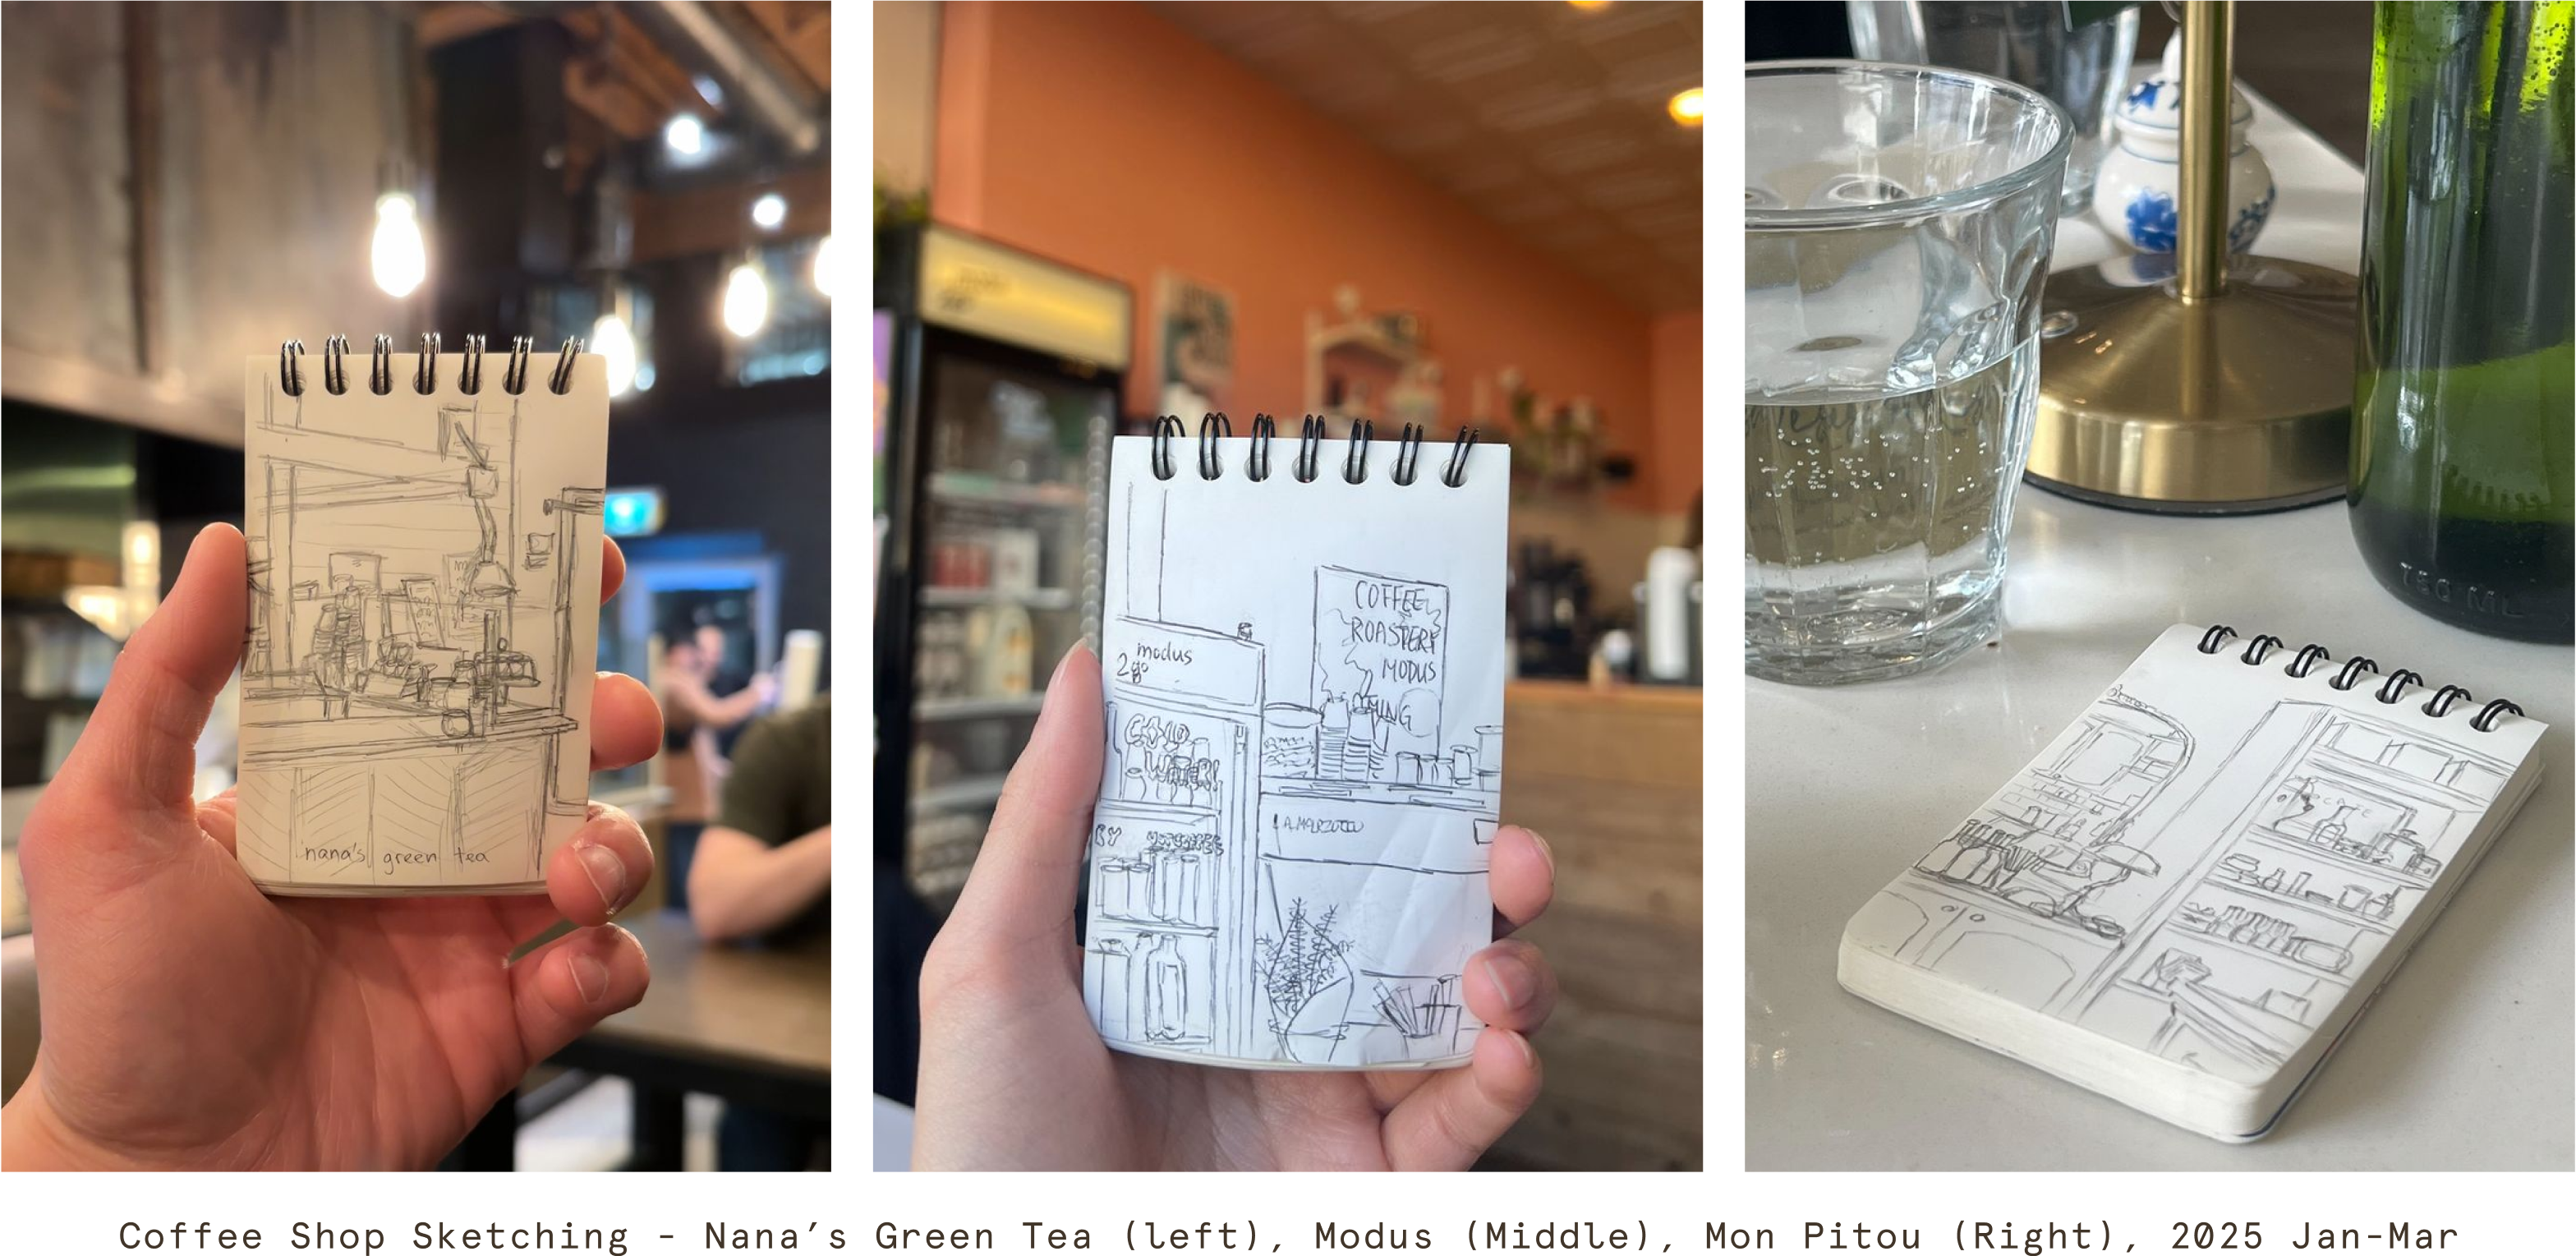 nana's green tea
modus
2go
COFFEE
ROASTERY
MODUS
COLD
WATER!
BY
LA MARZOCCO
750 ML
Coffee Shop Sketching - Nana’s Green Tea (left), Modus (Middle), Mon Pitou (Right), 2025 Jan-Mar